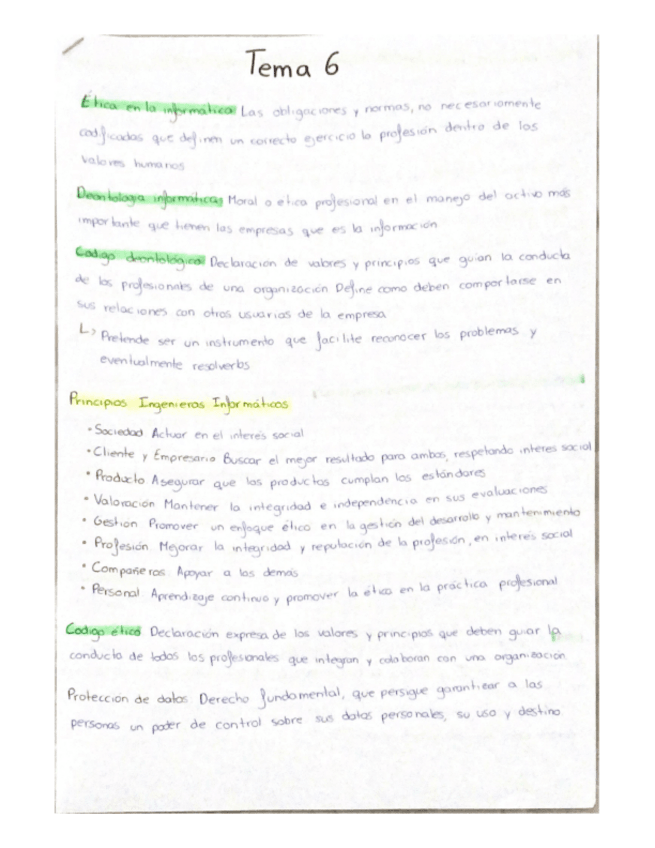 Tema 6
Ética en la informática Las obligaciones y normas, no necesariamente
codificadas que definen un correcto ejercicio la profesión dentro de los
valores humanos
Deontologia informáticas Moral o etica profesional en el manejo del activo más
importante que tienen las empresas que es la información
Codigo deontológico Declaración de valores y principios que guian la conducta
de los profesionales de una organización Define como deben comportarse en
sus relaciones con otros usuarios de la empresa
↳ Pretende ser un instrumento que facilite reconocer los problemas y
eventualmente resolverlos
Principios Ingenieros Informáticos
• Sociedad Actuar en el interés social
• Cliente y Empresario Buscar el mejor resultado para ambos, respetando interes social
• Producto Asegurar que los productos cumplan los estándares
• Valoración Mantener la integridad e independencia en sus evaluaciones
• Gestión Promover un enfoque ético en la gestión del desarrollo y mantenimiento
• Profesión Mejorar la integridad y reputación de la profesión, en interés social
• Compañeros Apoyar a los demás
• Personal Aprendizaje continuo y promover la ética en la práctica profesional
Codigo ético Declaración expresa de los valores y principios que deben guiar la
conducta de todos los profesionales que integran y colaboran con una organización
Protección de datos Derecho fundamental, que persigue garantizar a las
personas un poder de control sobre sus datos personales, su uso y destino